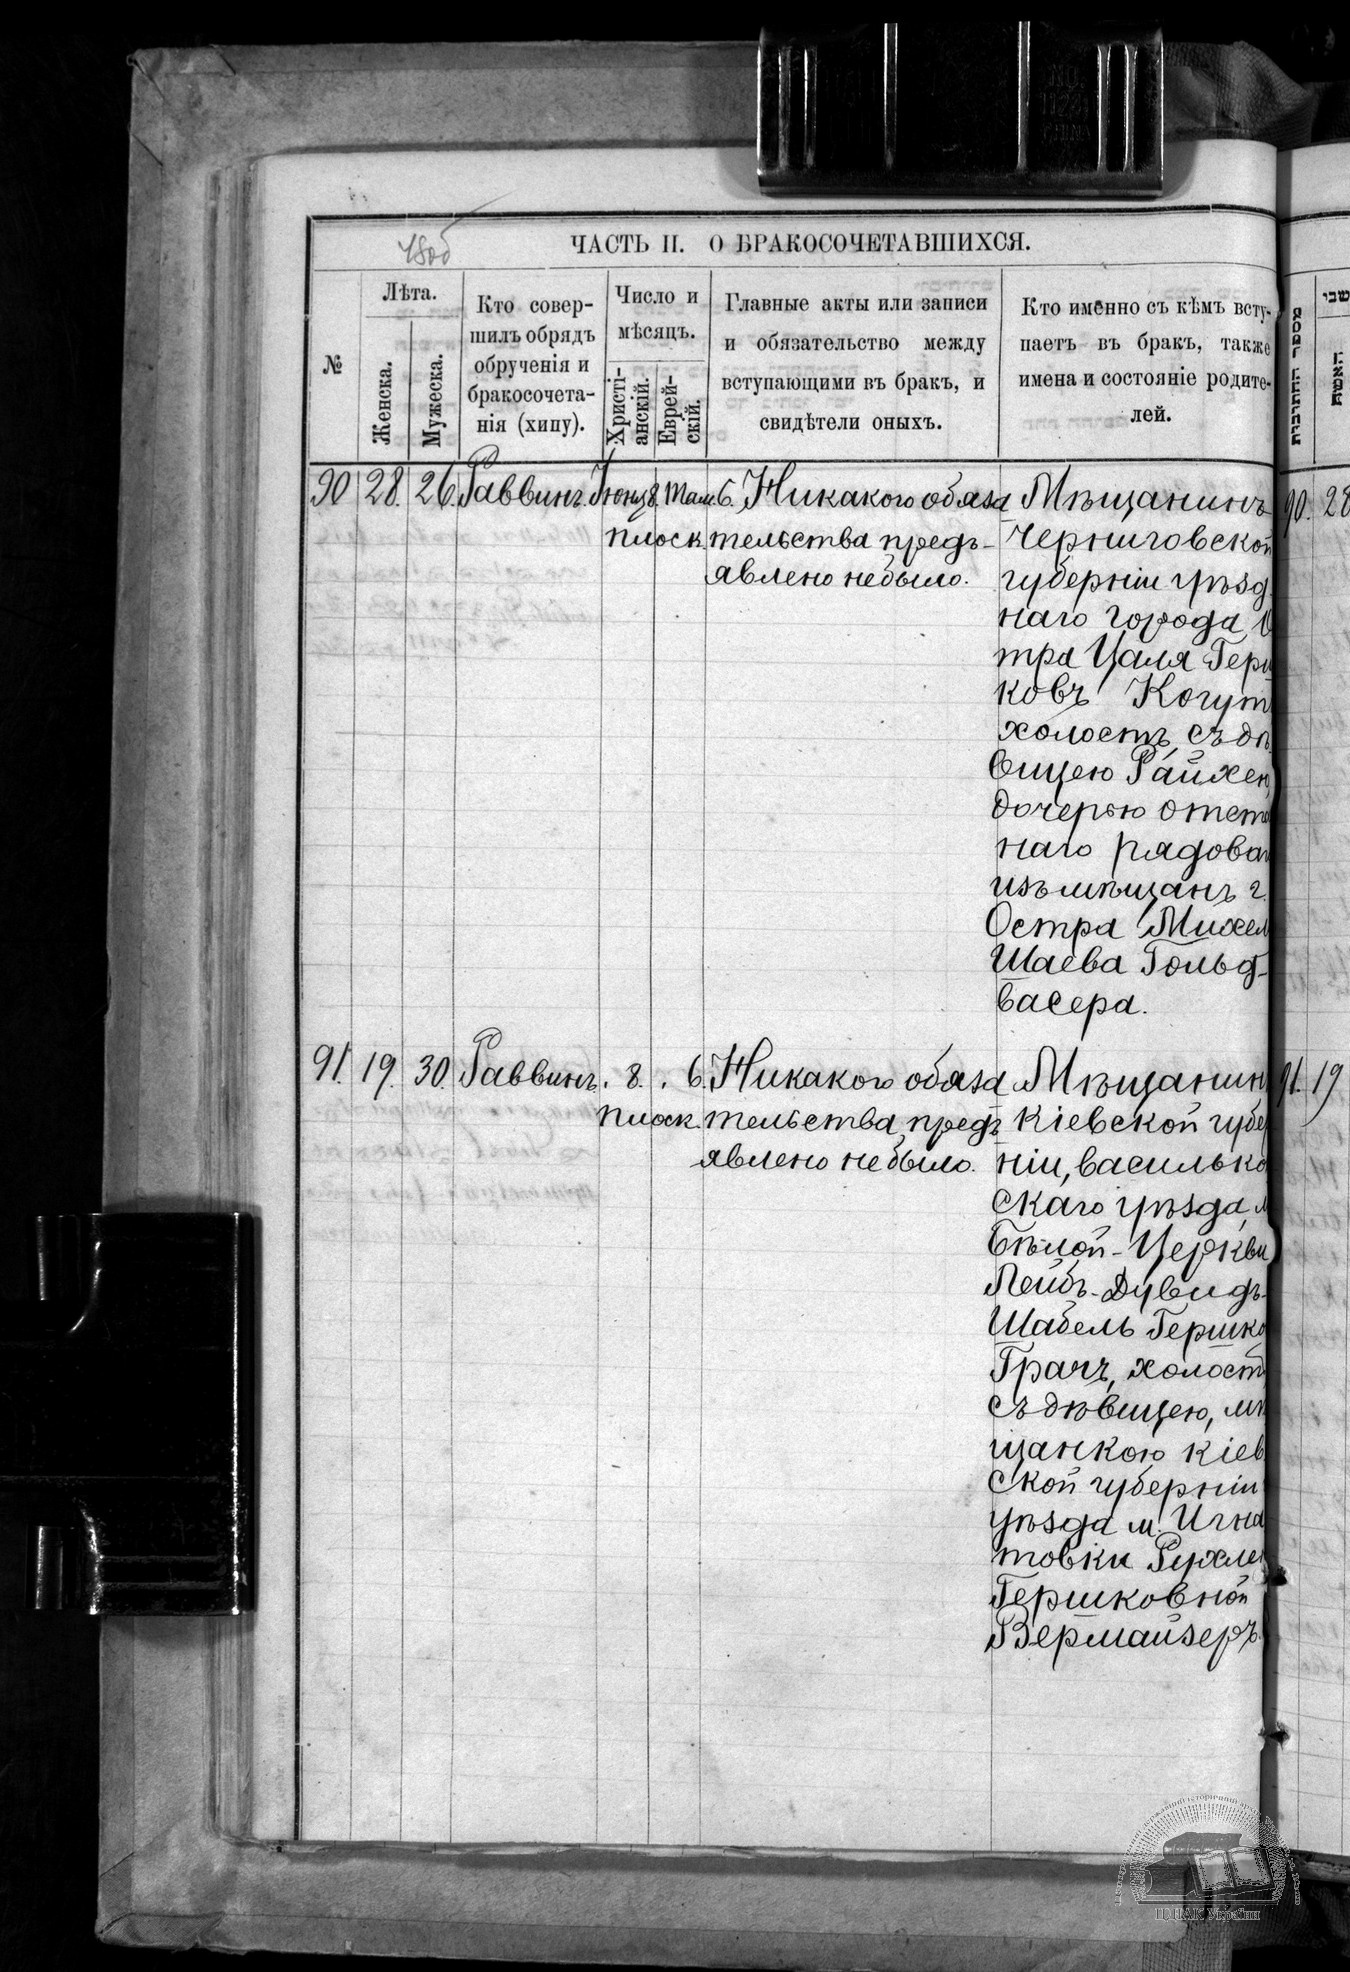 78об
ЧАСТЬ II. О БРАКОСОЧЕТАВШИХСЯ.
№
Лѣта.
Женска.
Мужеска.
Кто совер-
шилъ обрядъ
обрученія и
бракосочета-
нія (хипу).
Число и
мѣсяцъ.
Христі-
анскій.
Еврей-
скій.
Главные акты или записи
и обязательство между
вступающими въ бракъ, и
свидѣтели оныхъ.
Кто именно съ кѣмъ всту-
паетъ въ бракъ, также
имена и состояніе родите-
лей.
90 28. 26. Раввинъ. 8. Там. 6.
плоск.
Никакого обяза
тельства предъ-
явлено небыло.
Мѣщанинъ
Черниговской
губерніи уѣзд
наго города О
тра Цаля Герш
ковъ Когут
холостъ, съ дѣ
вицею Райхею,
дочерью отст
наго рядова
изъ мѣщанъ г.
Остра Михел
Шаева Гольд-
васера.
91. 19. 30. Раввинъ. 8. 6.
плоск.
Никакого обяза
тельства предъ
явлено небыло.
Мѣщанин
Кіевской губер
ніи, васильков
скаго уѣзда, м
Бѣлой-Церкви
Лейб-Дувидъ-
Шабель Гершко
Грачъ, холост
съ дѣвицею, мѣ
щанкою Кіев
ской губерніи
уѣзда м. Игна
товки Рухлею
Гершковной
Вермайзеръ.
מספר החתרבות
האשה
שני
90. 28
91. 19
NO.
1123
CHINA
ЦДІАК України